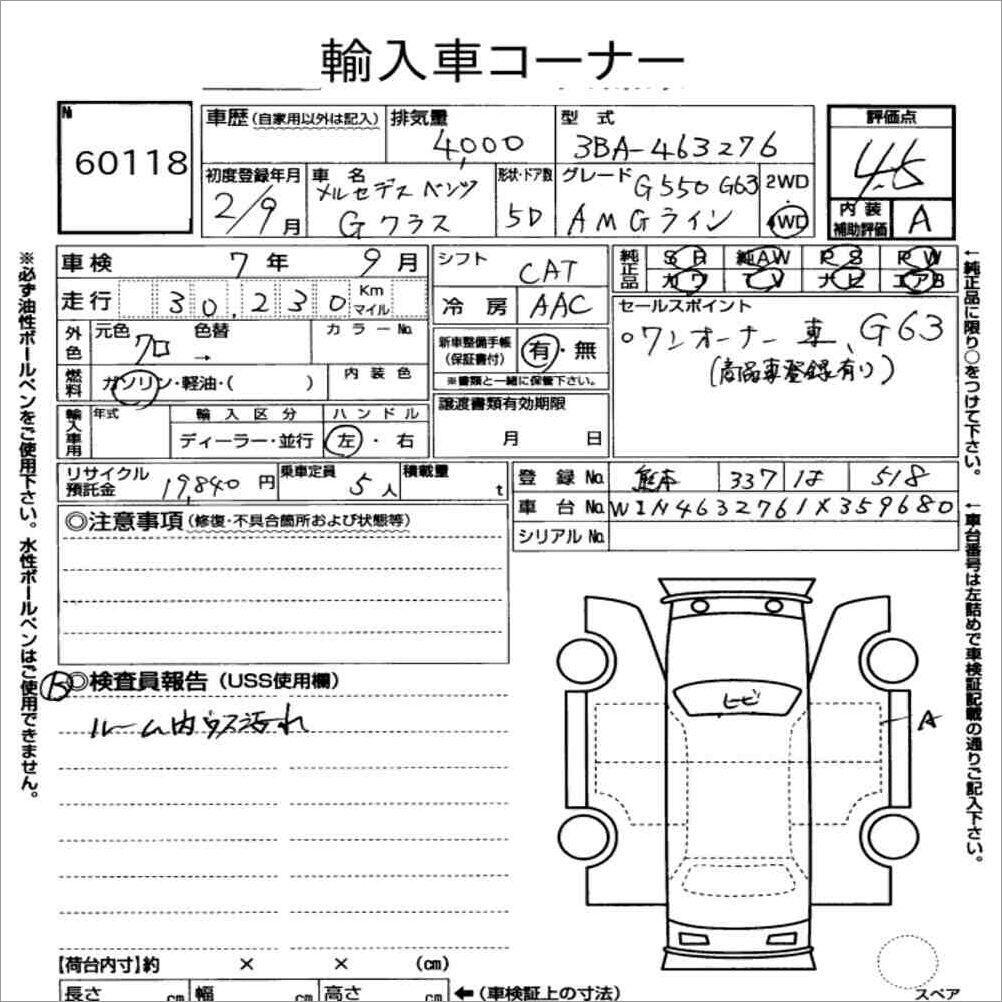 輸入車コーナー
№ 60118
車歴(自家用以外は記入) 排気量 4,000 型式 3BA-463276 評価点 4.5
初度登録年月 2/9月 車名 メルセデスベンツ Gクラス 形状・ドア数 5D グレード G550 G63 AMGライン 2WD 4WD 内装補助評価 A
車検 7年 9月 シフト CAT 純正品 SR 純AW PS PW
カワ TV ナビ エアB
走行 30,230 Km マイル 冷房 AAC
セールスポイント
外色 元色 クロ 色替 → カラーNo. 新車整備手帳(保証書付) 有・無
○ワンオーナー車、G63
(商品車登録有り)
燃料 ガソリン・軽油・( ) 内装色 ※書類と一緒に保管下さい。
輸入車用 年式 輸入区分 ハンドル 譲渡書類有効期限
ディーラー・並行 左・右 月 日
リサイクル預託金 19,840円 乗車定員 5人 積載量 t 登録No. 熊本 337 は 518
◎注意事項(修復・不具合箇所および状態等) 車台No. W1N4632761X359680
シリアルNo.
B ◎検査員報告(USS使用欄)
ルーム内ウス汚れ
トビ
A
【荷台内寸】約 × × (cm)
長さ cm 幅 cm 高さ cm ←(車検証上の寸法)
スペア
※必ず油性ボールペンをご使用下さい。水性ボールペンはご使用できません。
←純正品に限り○をつけて下さい。
←車台番号は左詰めで車検証記載の通りご記入下さい。